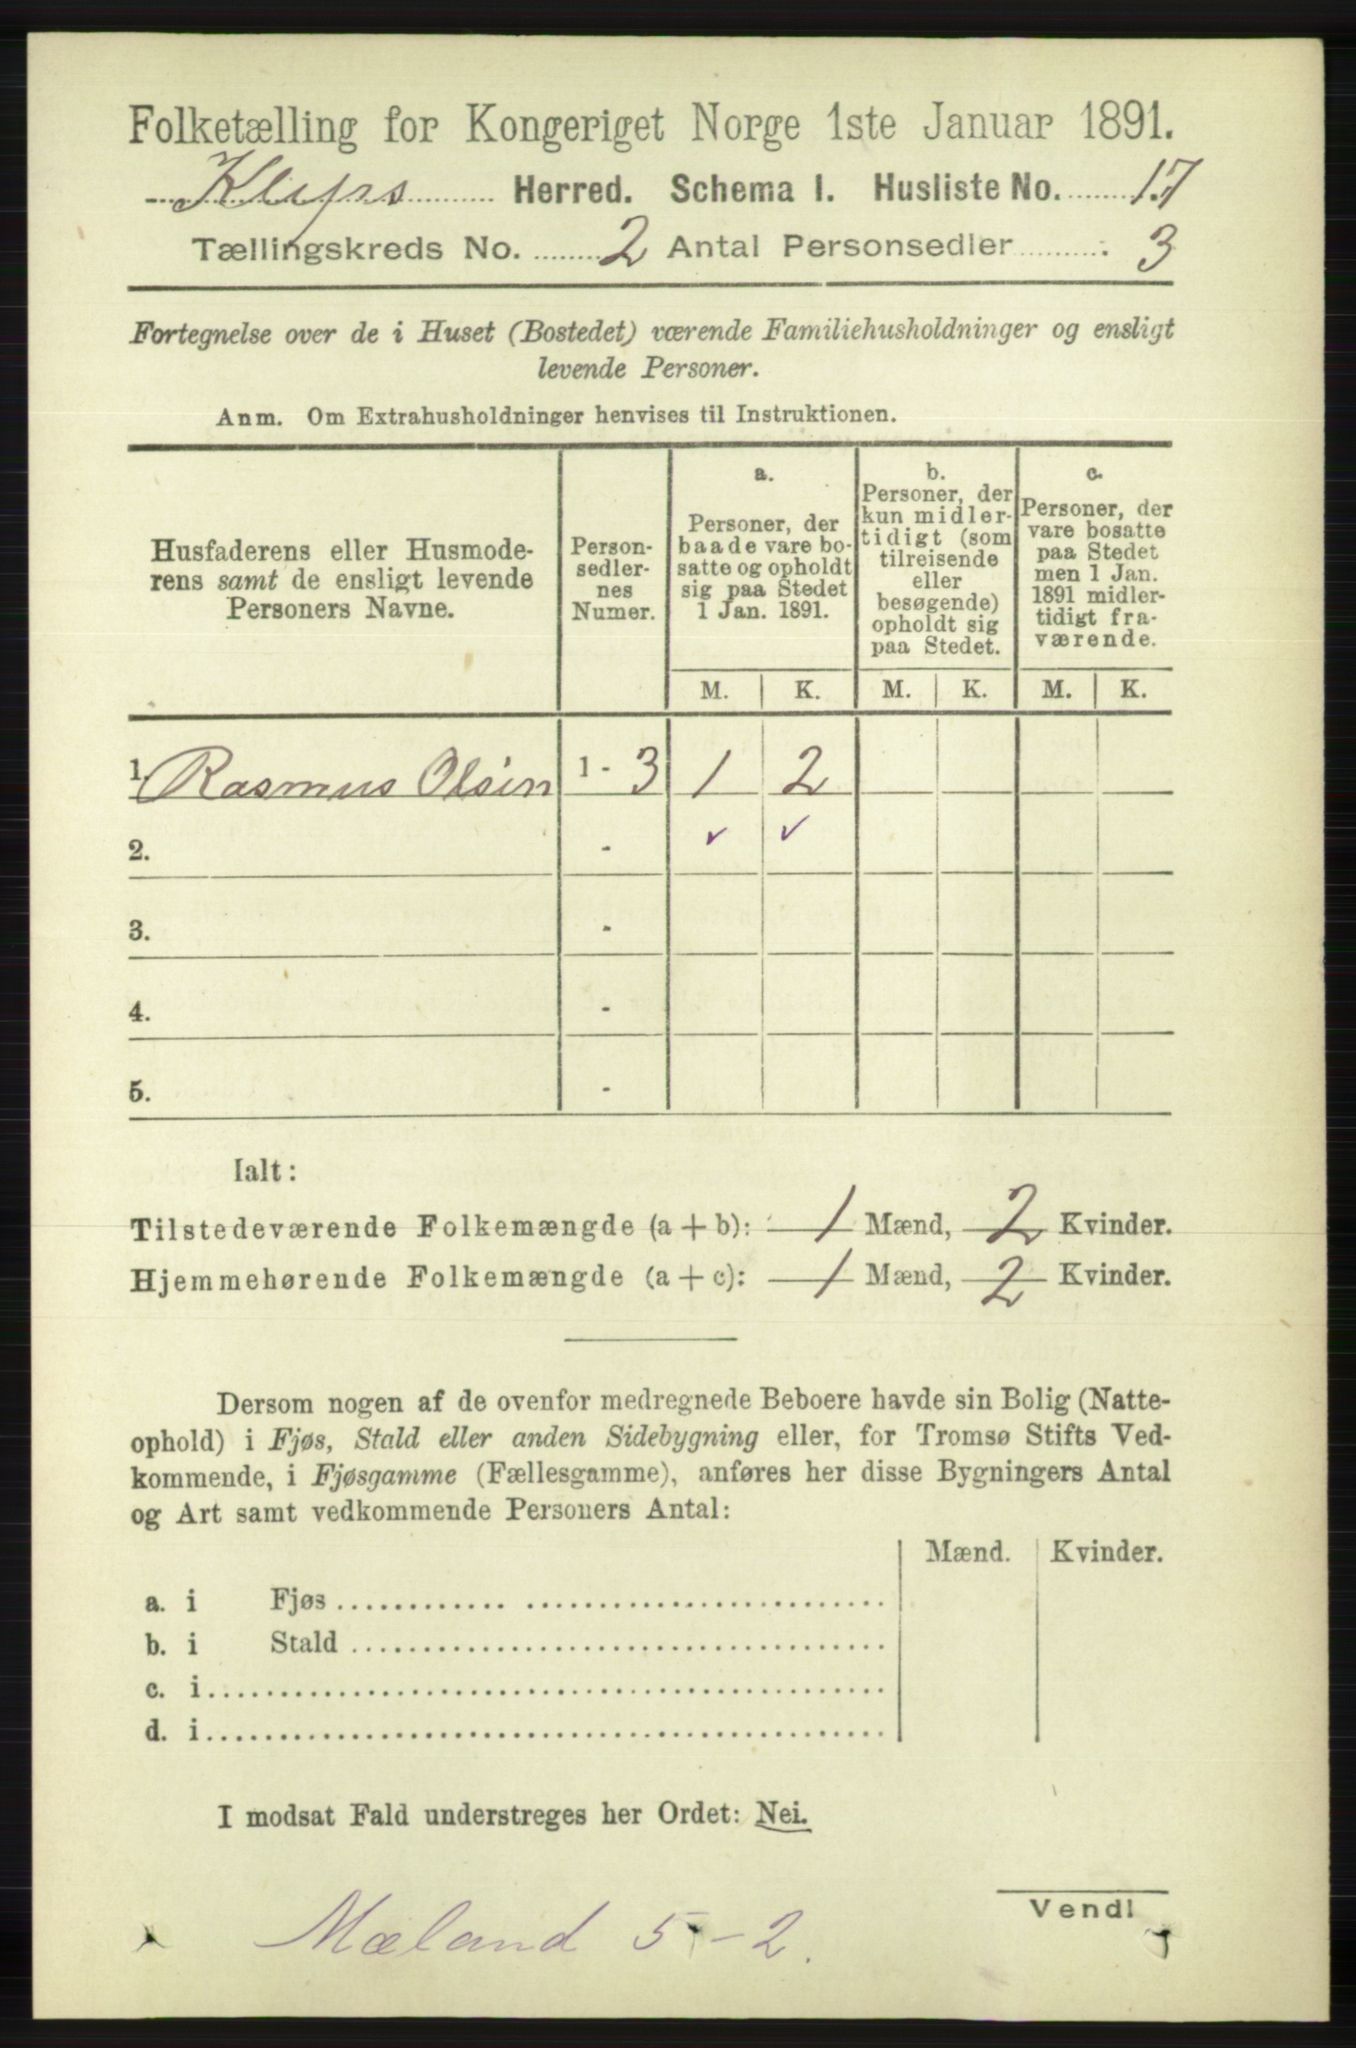 Folketælling for Kongeriget Norge 1ste Januar 1891.
Kleps Herred. Schema I. Husliste No. 17
Tællingskreds No. 2 Antal Personsedler 3
Fortegnelse over de i Huset (Bostedet) værende Familiehusholdninger og ensligt
levende Personer.
Anm. Om Extrahusholdninger henvises til Instruktionen.
Husfaderens eller Husmode-
rens samt de ensligt levende
Personers Navne.
Person-
sedler-
nes
Numer.
a.
Personer, der
baade vare bo-
satte og opholdt
sig paa Stedet
1 Jan. 1891.
b.
Personer, der
kun midler-
tidigt (som
tilreisende
eller
besøgende)
opholdt sig
paa Stedet.
c.
Personer, der
vare bosatte
paa Stedet
men 1 Jan.
1891 midler-
tidigt fra-
værende.
M. K. M. K. M. K.
1 Rasmus Olsen 1 - 3 1 2
2. - ✓ ✓
3. -
4. -
5. -
Ialt:
Tilstedeværende Folkemængde (a + b): 1 Mænd, 2 Kvinder.
Hjemmehørende Folkemængde (a + c): 1 Mænd, 2 Kvinder.
Dersom nogen af de ovenfor medregnede Beboere havde sin Bolig (Natte-
ophold) i Fjøs, Stald eller anden Sidebygning eller, for Tromsø Stifts Ved-
kommende, i Fjøsgamme (Fællesgamme), anføres her disse Bygningers Antal
og Art samt vedkommende Personers Antal:
Mænd. Kvinder.
a. i Fjøs
b. i Stald
c. i
d. i
I modsat Fald understreges her Ordet: Nei.
Vend!
Mæland 5-2.